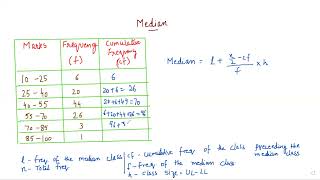 Median
Marks Frequency (f) Cumulative Frequency (cf)
10 - 25 6 6
25 - 40 20 20+6 = 26
40 - 55 44 20+6+44=70
55 - 70 26 6+20+44+26=96
70 - 85 3 96+3
85 - 100 1
Median = l + n/2 - cf / f × h
l - freq. of the median class
n - Total freq
cf - cumulative freq of the class preceding the median class
f - freq of the median class
h - class size = UL - LL